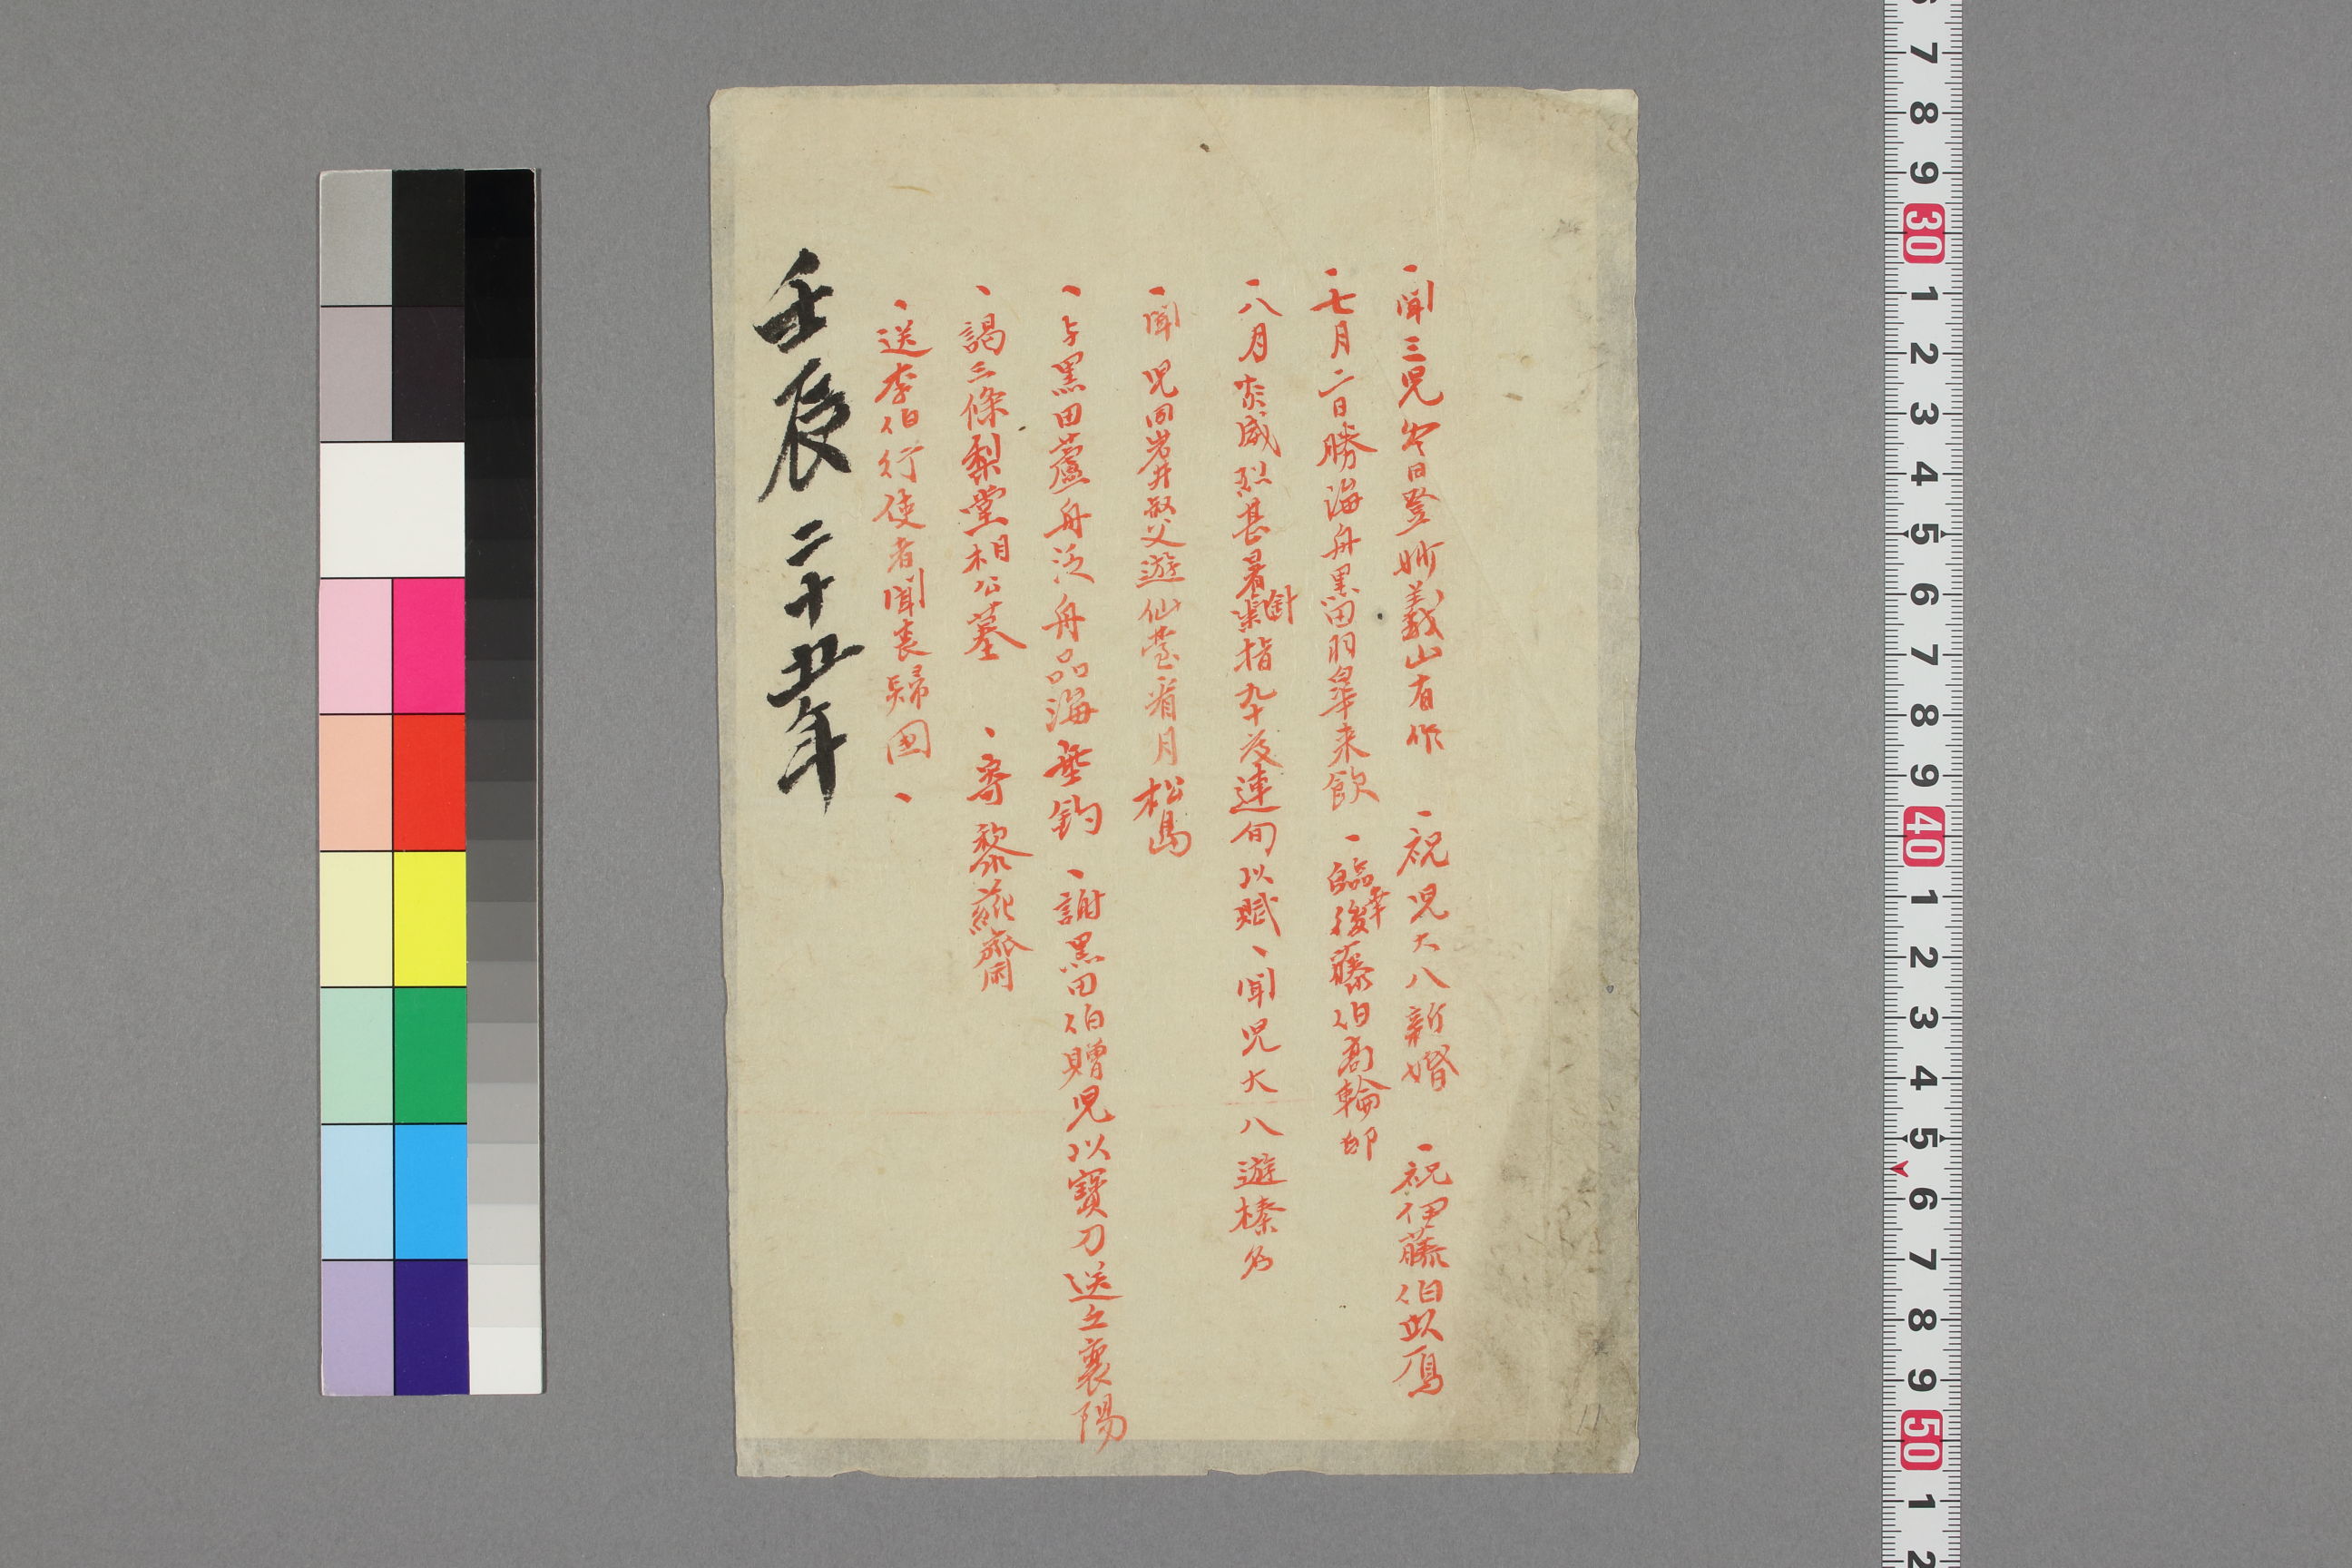 一聞三児今日登妙義山有作 一祝児大八新婚 一祝伊藤伯以鳫
一七月二日勝海舟黒田羽皐来飲 一臨幸後藤伯高輪邸
一八月炎威烈甚暑針指九十度連旬以賦 一聞児大八遊榛名
一聞児同岩井叔父遊仙臺看月松島
一与黒田蘆舟泛舟品海垂釣 一謝黒田伯贈児以寶刀送之襄陽
一謁三條梨堂相公墓 一寄黎蒓齋
一送李伯行使者聞喪歸国一
壬辰二十五年